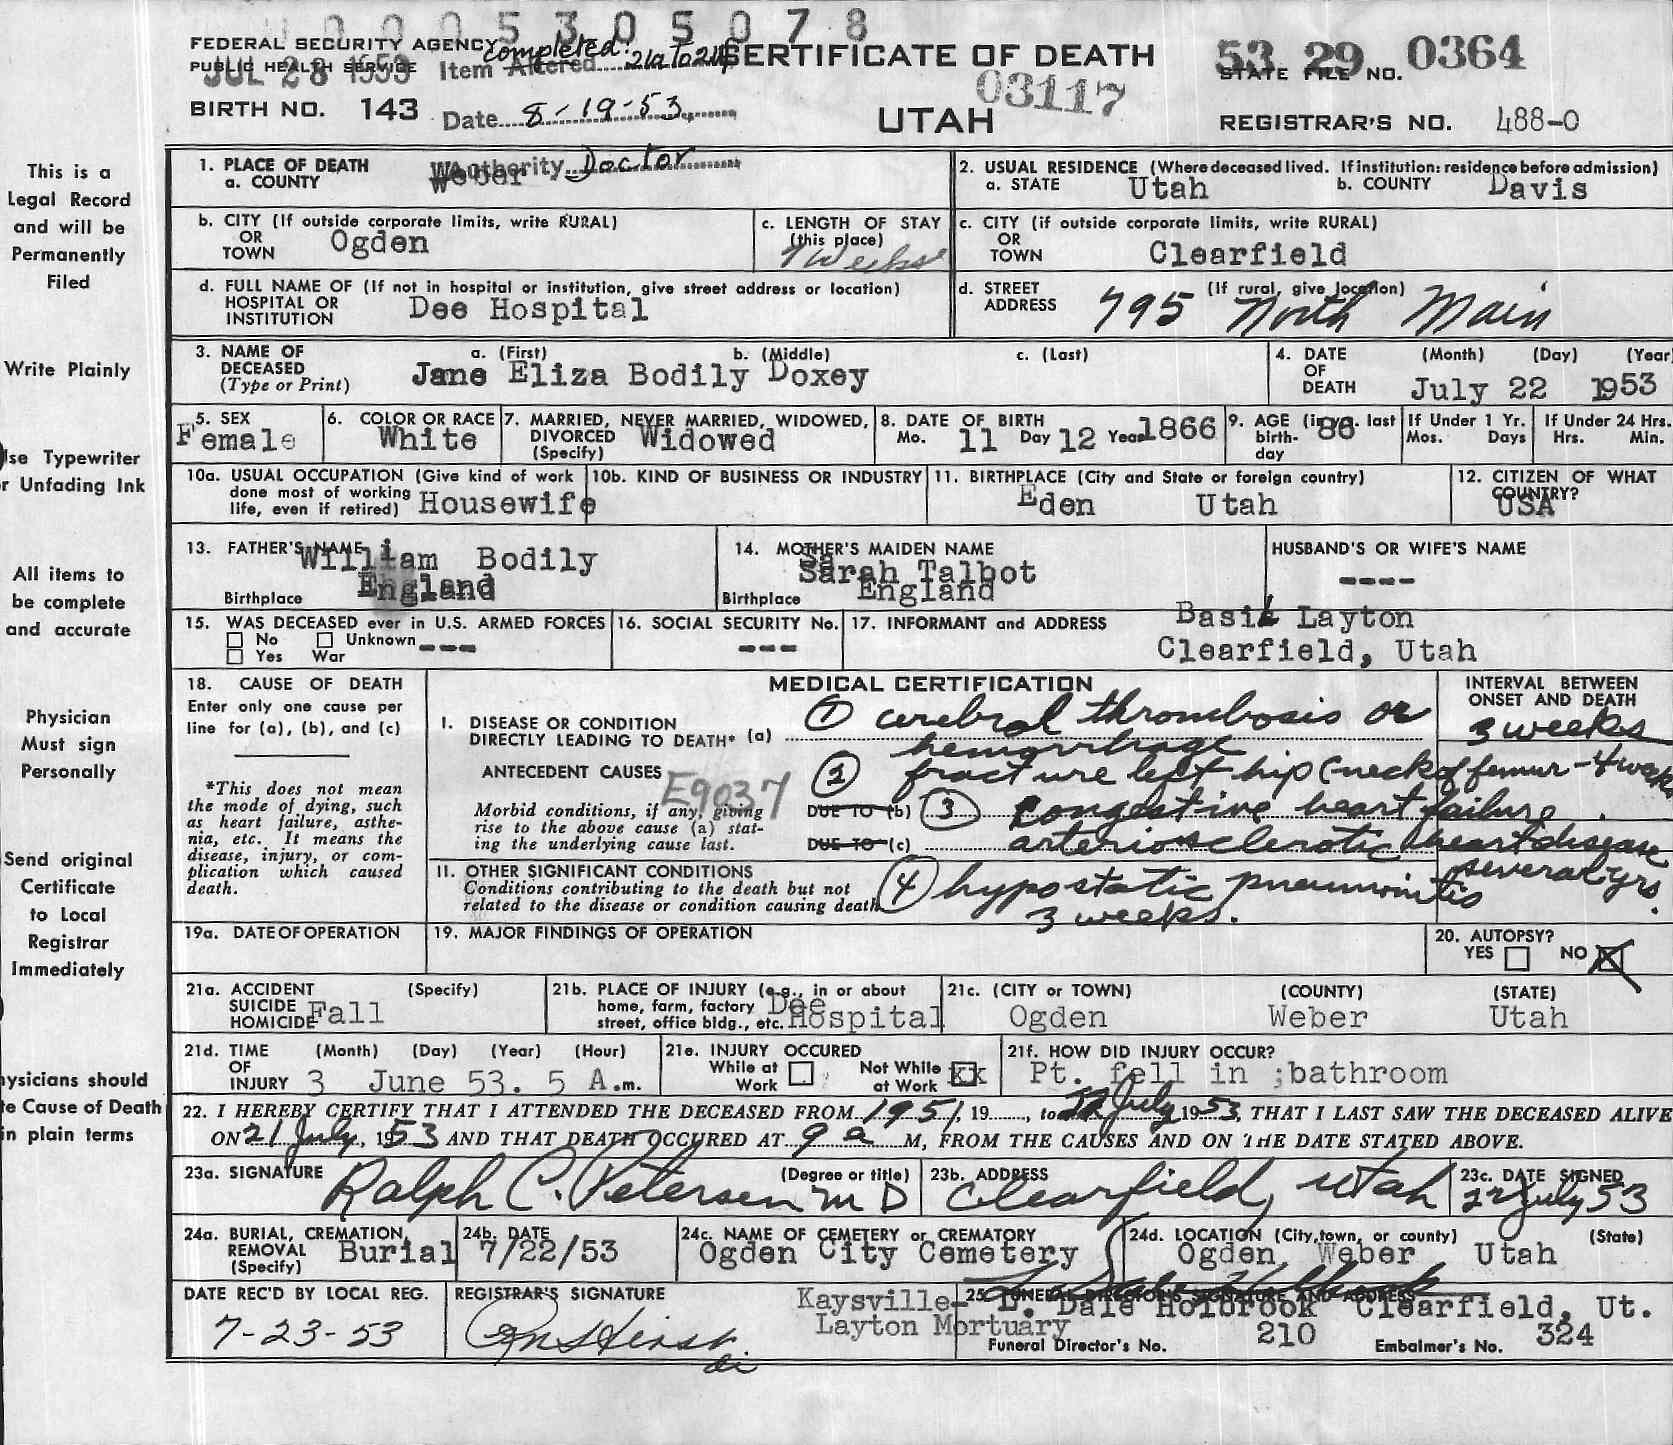 0005305078
FEDERAL SECURITY AGENCY
PUBLIC HEALTH SERVICE
JUL 28 1953
Item Altered completed: 21a to 21f
BIRTH NO. 143
Date 8-19-53
Authority Doctor
CERTIFICATE OF DEATH
03117
UTAH
53 29 0364
STATE FILE NO.
REGISTRAR'S NO. 488-0
This is a
Legal Record
and will be
Permanently
Filed
Write Plainly
Use Typewriter
or Unfading Ink
All items to
be complete
and accurate
Physician
Must sign
Personally
Send original
Certificate
to Local
Registrar
Immediately
Physicians should
te Cause of Death
in plain terms
1. PLACE OF DEATH
a. COUNTY Weber
2. USUAL RESIDENCE (Where deceased lived. If institution: residence before admission)
a. STATE Utah b. COUNTY Davis
b. CITY (If outside corporate limits, write RURAL)
OR
TOWN Ogden
c. LENGTH OF STAY
(this place)
Weeks
c. CITY (if outside corporate limits, write RURAL)
OR
TOWN Clearfield
d. FULL NAME OF (If not in hospital or institution, give street address or location)
HOSPITAL OR
INSTITUTION Dee Hospital
d. STREET (If rural, give location)
ADDRESS 795 North Main
3. NAME OF a. (First) b. (Middle) c. (Last)
DECEASED
(Type or Print) Jane Eliza Bodily Doxey
4. DATE (Month) (Day) (Year)
OF
DEATH July 22 1953
5. SEX
Female
6. COLOR OR RACE
White
7. MARRIED, NEVER MARRIED, WIDOWED,
DIVORCED Widowed
(Specify)
8. DATE OF BIRTH
Mo. 11 Day 12 Year 1866
9. AGE (in yrs. last
birth- 86
day
If Under 1 Yr.
Mos. Days
If Under 24 Hrs.
Hrs. Min.
10a. USUAL OCCUPATION (Give kind of work
done most of working
life, even if retired) Housewife
10b. KIND OF BUSINESS OR INDUSTRY
11. BIRTHPLACE (City and State or foreign country)
Eden Utah
12. CITIZEN OF WHAT
COUNTRY?
USA
13. FATHER'S NAME
William Bodily
Birthplace England
14. MOTHER'S MAIDEN NAME
Sarah Talbot
Birthplace England
HUSBAND'S OR WIFE'S NAME
----
15. WAS DECEASED ever in U.S. ARMED FORCES
No Unknown
Yes War ---
16. SOCIAL SECURITY No.
---
17. INFORMANT and ADDRESS
Basil Layton
Clearfield, Utah
18. CAUSE OF DEATH
Enter only one cause per
line for (a), (b), and (c)
*This does not mean
the mode of dying, such
as heart failure, asthe-
nia, etc. It means the
disease, injury, or com-
plication which caused
death.
MEDICAL CERTIFICATION
INTERVAL BETWEEN
ONSET AND DEATH
I. DISEASE OR CONDITION
DIRECTLY LEADING TO DEATH* (a) ① cerebral thrombosis or
hemorrhage
3 weeks
ANTECEDENT CAUSES
E9037
② fracture left hip (neck of femur - 4 weeks
Morbid conditions, if any, giving
rise to the above cause (a) stat-
ing the underlying cause last.
DUE TO (b) ③ congestive heart failure
DUE TO (c) arteriosclerotic heart disease
several yrs.
11. OTHER SIGNIFICANT CONDITIONS
Conditions contributing to the death but not
related to the disease or condition causing death
④ hypostatic pneumonitis
3 weeks.
19a. DATE OF OPERATION
19. MAJOR FINDINGS OF OPERATION
20. AUTOPSY?
YES NO X
21a. ACCIDENT (Specify)
SUICIDE
HOMICIDE Fall
21b. PLACE OF INJURY (e.g., in or about
home, farm, factory
street, office bldg., etc. Dee
Hospital
21c. (CITY or TOWN) (COUNTY) (STATE)
Ogden Weber Utah
21d. TIME (Month) (Day) (Year) (Hour)
OF
INJURY 3 June 53. 5 A.m.
21e. INJURY OCCURED
While at
Work
Not While
at Work xx
21f. HOW DID INJURY OCCUR?
Pt. fell in ;bathroom
22. I HEREBY CERTIFY THAT I ATTENDED THE DECEASED FROM 1951, 19...., to 22 July 1953, THAT I LAST SAW THE DECEASED ALIVE
ON 21 July, 1953 AND THAT DEATH OCCURED AT 9 a M, FROM THE CAUSES AND ON THE DATE STATED ABOVE.
23a. SIGNATURE (Degree or title)
Ralph C. Petersen MD
23b. ADDRESS
Clearfield, Utah
23c. DATE SIGNED
22 July 53
24a. BURIAL, CREMATION,
REMOVAL Burial
(Specify)
24b. DATE
7/22/53
24c. NAME OF CEMETERY or CREMATORY
Ogden City Cemetery
24d. LOCATION (City, town, or county) (State)
Ogden Weber Utah
DATE REC'D BY LOCAL REG.
7-23-53
REGISTRAR'S SIGNATURE
Kaysville-
Layton Mortuary
25. FUNERAL DIRECTOR'S SIGNATURE AND ADDRESS
L. Dale Holbrook Clearfield, Ut.
Funeral Director's No. 210 Embalmer's No. 324